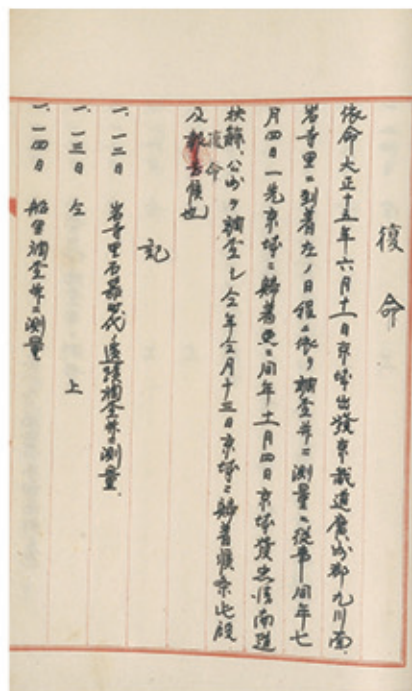 復命
依命大正十五年六月十一日京城出發京畿道廣州郡九川面
岩寺里ニ到着左ノ日程ニ依リ調査并ニ測量ニ從事同年七
月四日一先京城ニ歸着更ニ同年十一月四日京城發忠淸南道
扶餘、公州ヲ調査シ仝年仝月十三日京城ニ歸着候条此段
復命
及報告候也
記
一、一二日 岩寺里石器時代ノ遺蹟調査并ニ測量
一、一三日 仝 上
一、一四日 調査并ニ測量